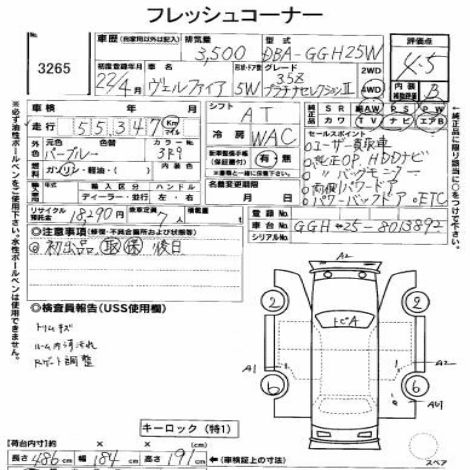 フレッシュコーナー
3265
車歴 (自家用以外は記入) 排気量 3,500 型式 DBA-GGH25W 評価点 4.5
初度登録年月 22/4 車名 ヴェルファイア 形状・ドア 5W グレード 3.5Z プラチナセレクションⅡ 2WD 4WD 内装 補助評価 B
車検 年 月 シフト AT 純正品 SR 革 AW PS PW
走行 55,347 Km マイル カワ TV ナビ エアB
元色 パープル 色替 色番 3P9 冷房 WAC セールスポイント
外装色
ガソリン・軽油・( ) 新車整備手帳 (保証書付) 有・無
輸入区分 ハンドル
ディーラー・並行 左・右 名義変更期限
リサイクル預託金 18290円 乗車定員 7人 積載量
①ユーザー買取車
②純正OP. HDDナビ
③ 〃 バックモニター
④両側パワードア
⑤パワーバックドア ⑥ETC
登録No.
車台No. GGH-25-8013892
シリアルNo.
◎注意事項 (修復・不具合箇所および状態等)
◎初出品 取保 後日
◎検査員報告 (USS使用欄)
トリムキズ
ルーム内汚れ
Rゲート調整
A2
2 2
トビA
A1 A2
6 6
キーロック (特1)
【荷台内寸】 × × ←(車検証上の寸法)
長さ 486 cm 幅 184 cm 高さ 191 cm
スペア
※必ず油性ボールペンをご使用下さい。水性ボールペンは使用できません。